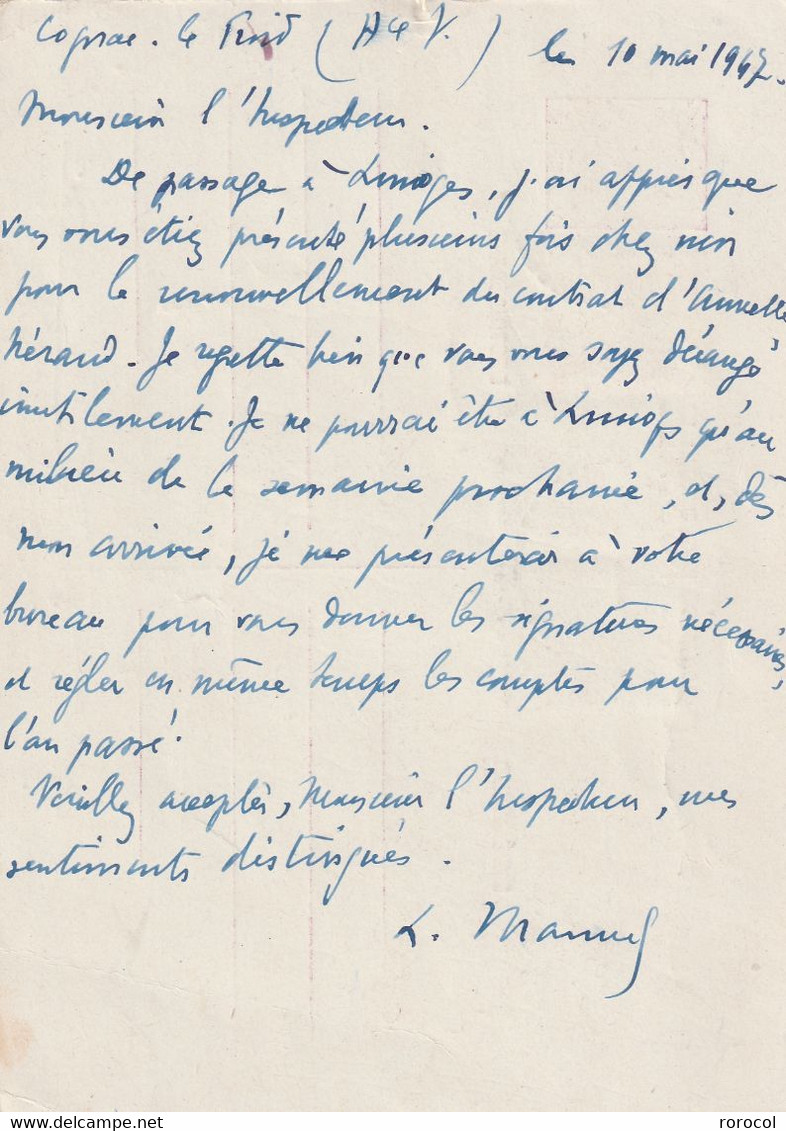 Cognac. le Froid (Hte V.) le 10 mai 1947.
Monsieur l'Inspecteur.
De passage à Limoges, j'ai appris que
vous vous étiez présenté plusieurs fois chez moi
pour le renouvellement du contrat d'Annette
Héraud. Je regrette bien que vous vous soyez dérangé
inutilement. Je ne pourrai être à Limoges qu'au
milieu de la semaine prochaine, et, dès
mon arrivée, je me présenterai à votre
bureau pour vous donner les signatures nécessaires,
et régler en même temps les comptes pour
l'an passé.
Veuillez accepter, Monsieur l'Inspecteur, mes
sentiments distingués.
L.
Delcampe.net
rorocol